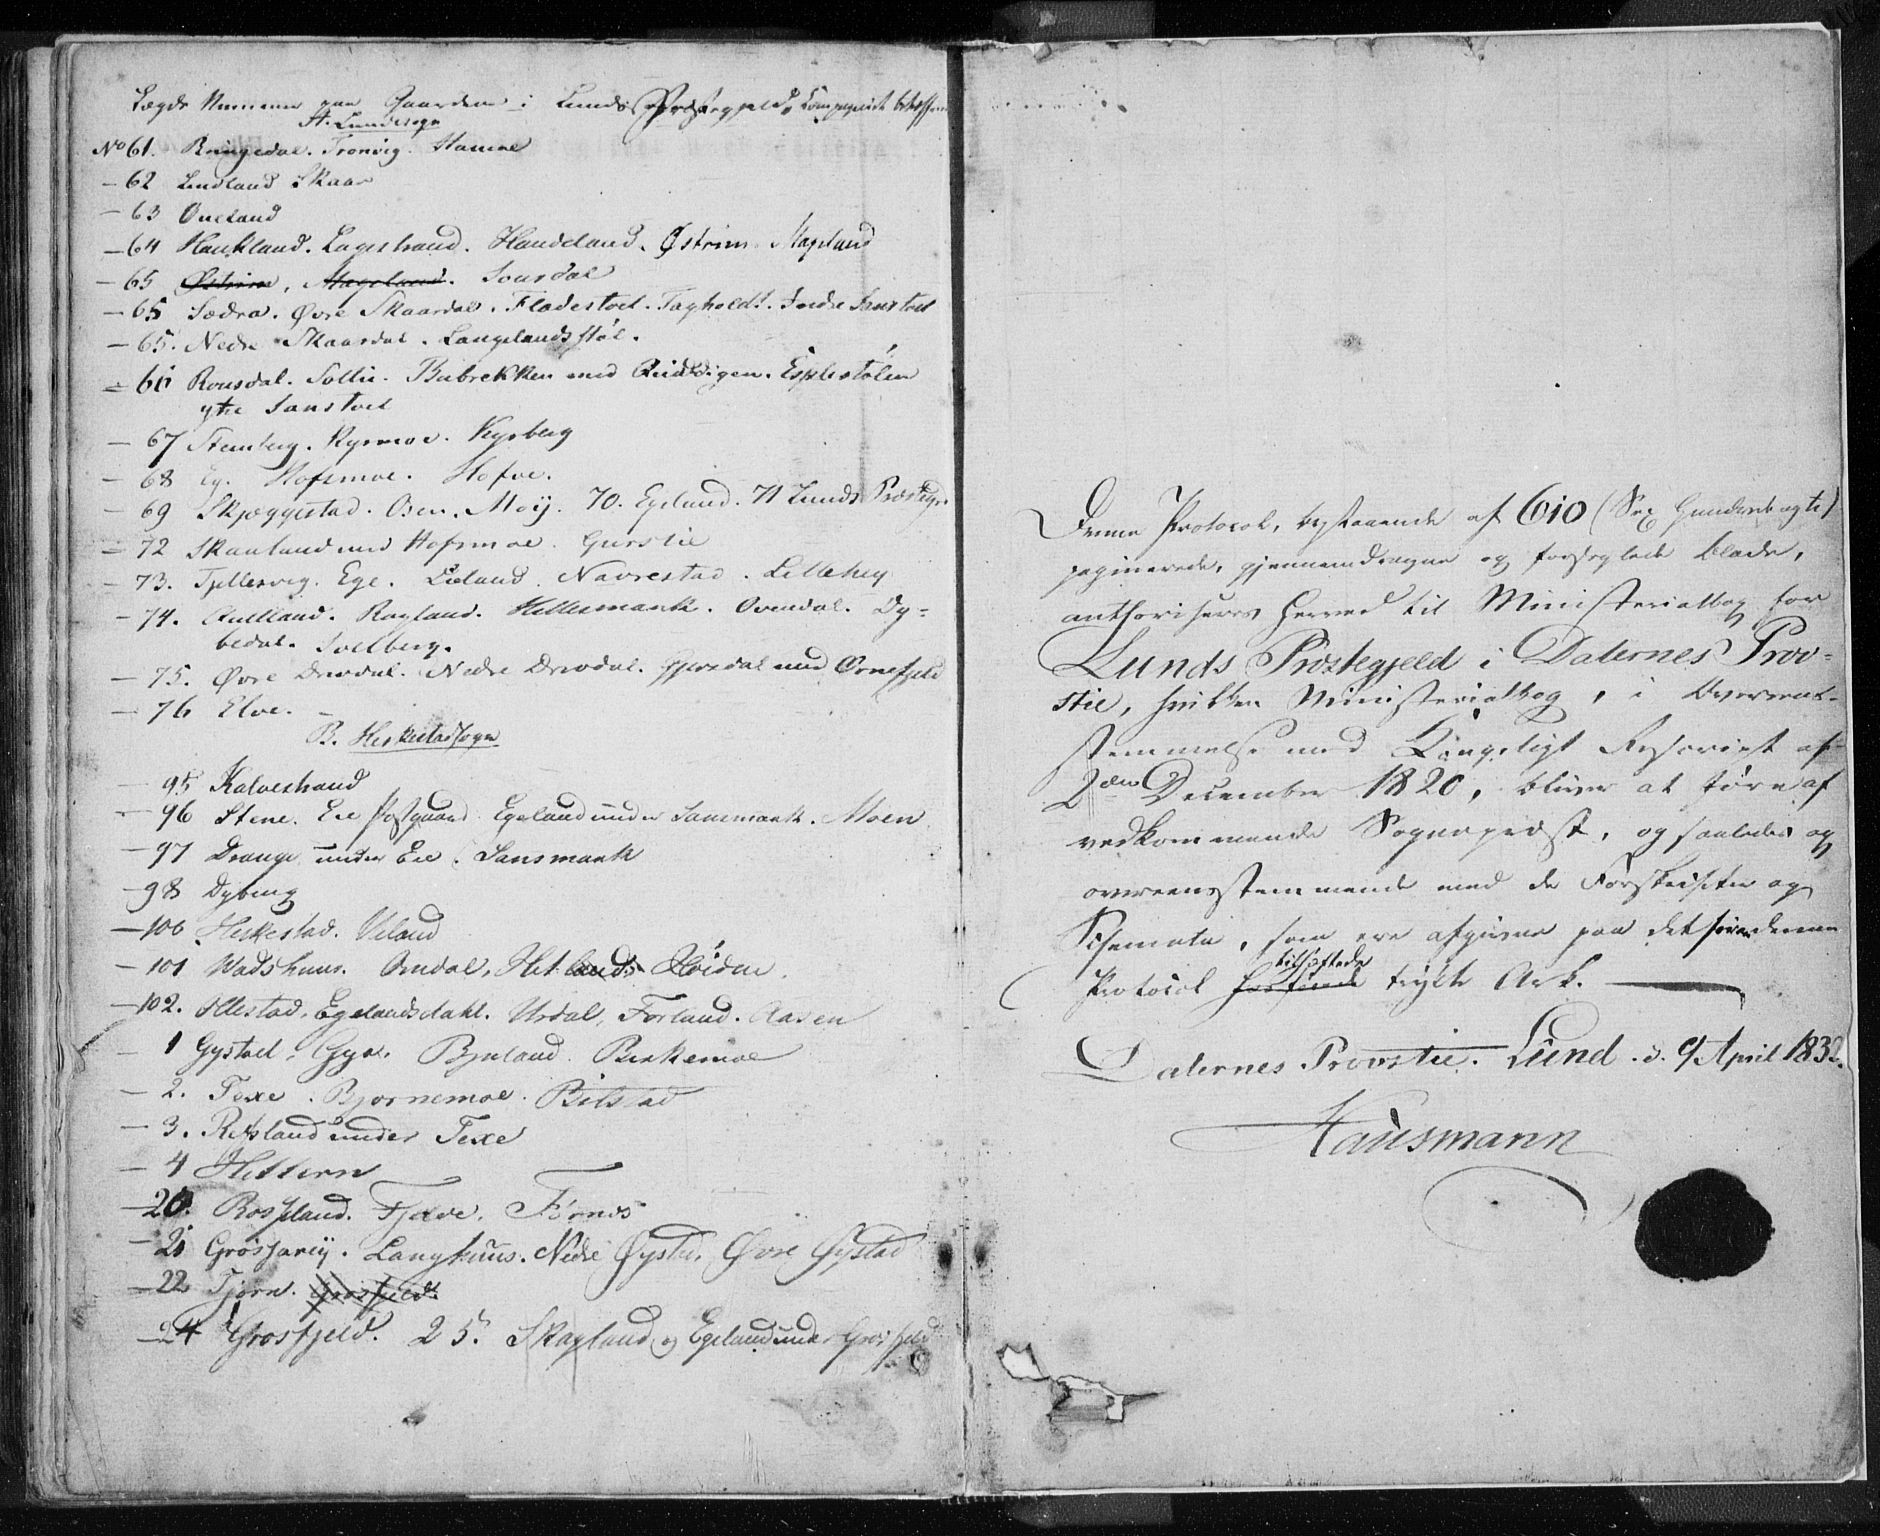 Lægds Nummer paa Gaardene i Lunds Præstegjeld,
A. Lundesogn
No 61. Ringedal. Tronvig. Hamre
— 62 Lindland Skaar
— 63 Oueland
— 64 Haukland. Lagestrand. Handeland. Østrim. Mageland
— 65 Østrim, Mageland. Sousdal
— 65 Sædra. Øvre Skaardal. Fladestoel. Tagholdt. Indre Sanstoel
— 65. Nedre Skaardal. Langelandsstøl.
— 66 Rousdal. Sollie. Bubrekken med Esplestølen
ytre Sanstoel
— 67 Stemberg. Rysmoe. Kysberg
— 68 Eg. Hofsmoe. Hofve.
— 69 Skjæggestad. Osen. Moÿ. 70. Egeland. 71 Lunds Præstegr.
— 72 Skaaland med Hofsmoe. Gurslie
— 73. Tjellesvig. Ege. Eieland. Navrestad. Lillehey
— 74. Aulland. Ragland. Hellesmark. Ovendal. Dy=
bedal. Svelberg.
— 75. Øvre Drivdal. Nedre Drivdal. Gjersdal med Ørnefjeld
— 76 Elve. —
B. Heskestadsogn
— 95 Kalveshaud
— 96 Stene. Eie Postgaard Egeland under Sansmark. Moen
— 97 Drange under Eie. Sansmark
— 98 Dybing
— 100 Heskestad. Veland
— 101 Wadshuus. Omdal, Hetlands Høiden.
— 102. Ollestad, Egelandsdahl. Urdal, Førland. Aasen
— 1 Gystoel. Gya. Bjuland. Birkemoe
— 2. Texe. Bjørnemoe. Bilstad
— 3. Refsland under Texe
— 4 Hetlern
— 20. Rossland. Fjelde. Førnes
— 21 Grøsfareij. Langhuus. Nedre Øysta, Øvre Øystad
— 22 Tjørn. Grosfjeld.
— 24 Grosfjeld. 25. Skagland og Egeland under Grosfjeld
Denne Protocol, bestaaende af 610 (Sex Hundrede og ti)
paginerede, gjennemdragne og forseglede Blade,
authoriseres herved til Ministerialbog for
Lunds Præstegjeld i Dalernes Prov=
stie, hvilken Ministerialbog, i Overeens=
stemmelse med Kongeligt Rescript af
2den December 1820, bliver at føre af
vedkommende Sogneprest, og saaledes og
overeensstemmende med de Forskrifter og
Schemata, som ere afgivne paa det foran denne
tilheftede
Protocol trykte Ark. —
Dalernes Provstie. Lund d. 9 April 183
Hausmann